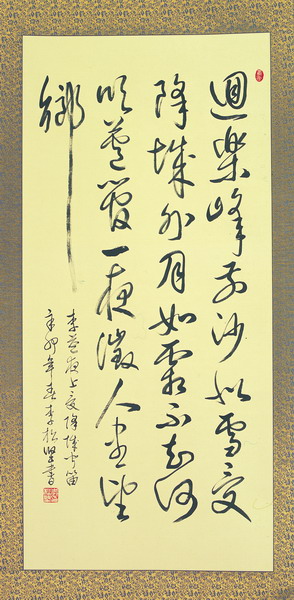 迴樂峰前沙似雪受
降城外月如霜不知何
吹蘆管一夜徵人盡望
鄉
李益夜上受降城聞笛
辛卯年春李松堅書